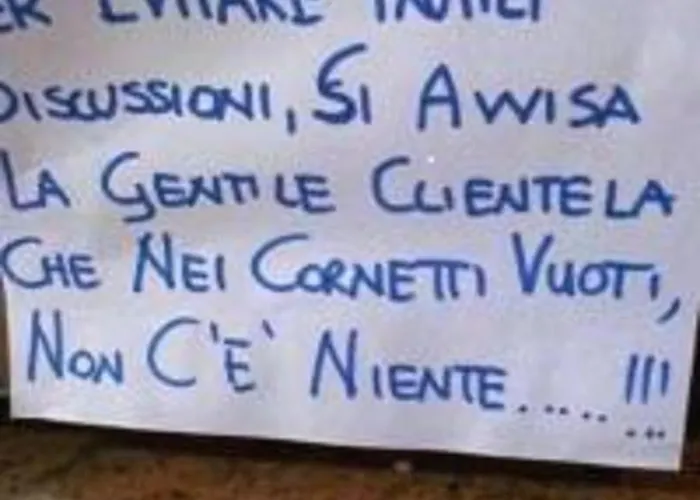 ER EVITARE INUTILI
DISCUSSIONI, SI AVVISA
LA GENTILE CLIENTELA
CHE NEI CORNETTI VUOTI,
NON C'E' NIENTE........!!!